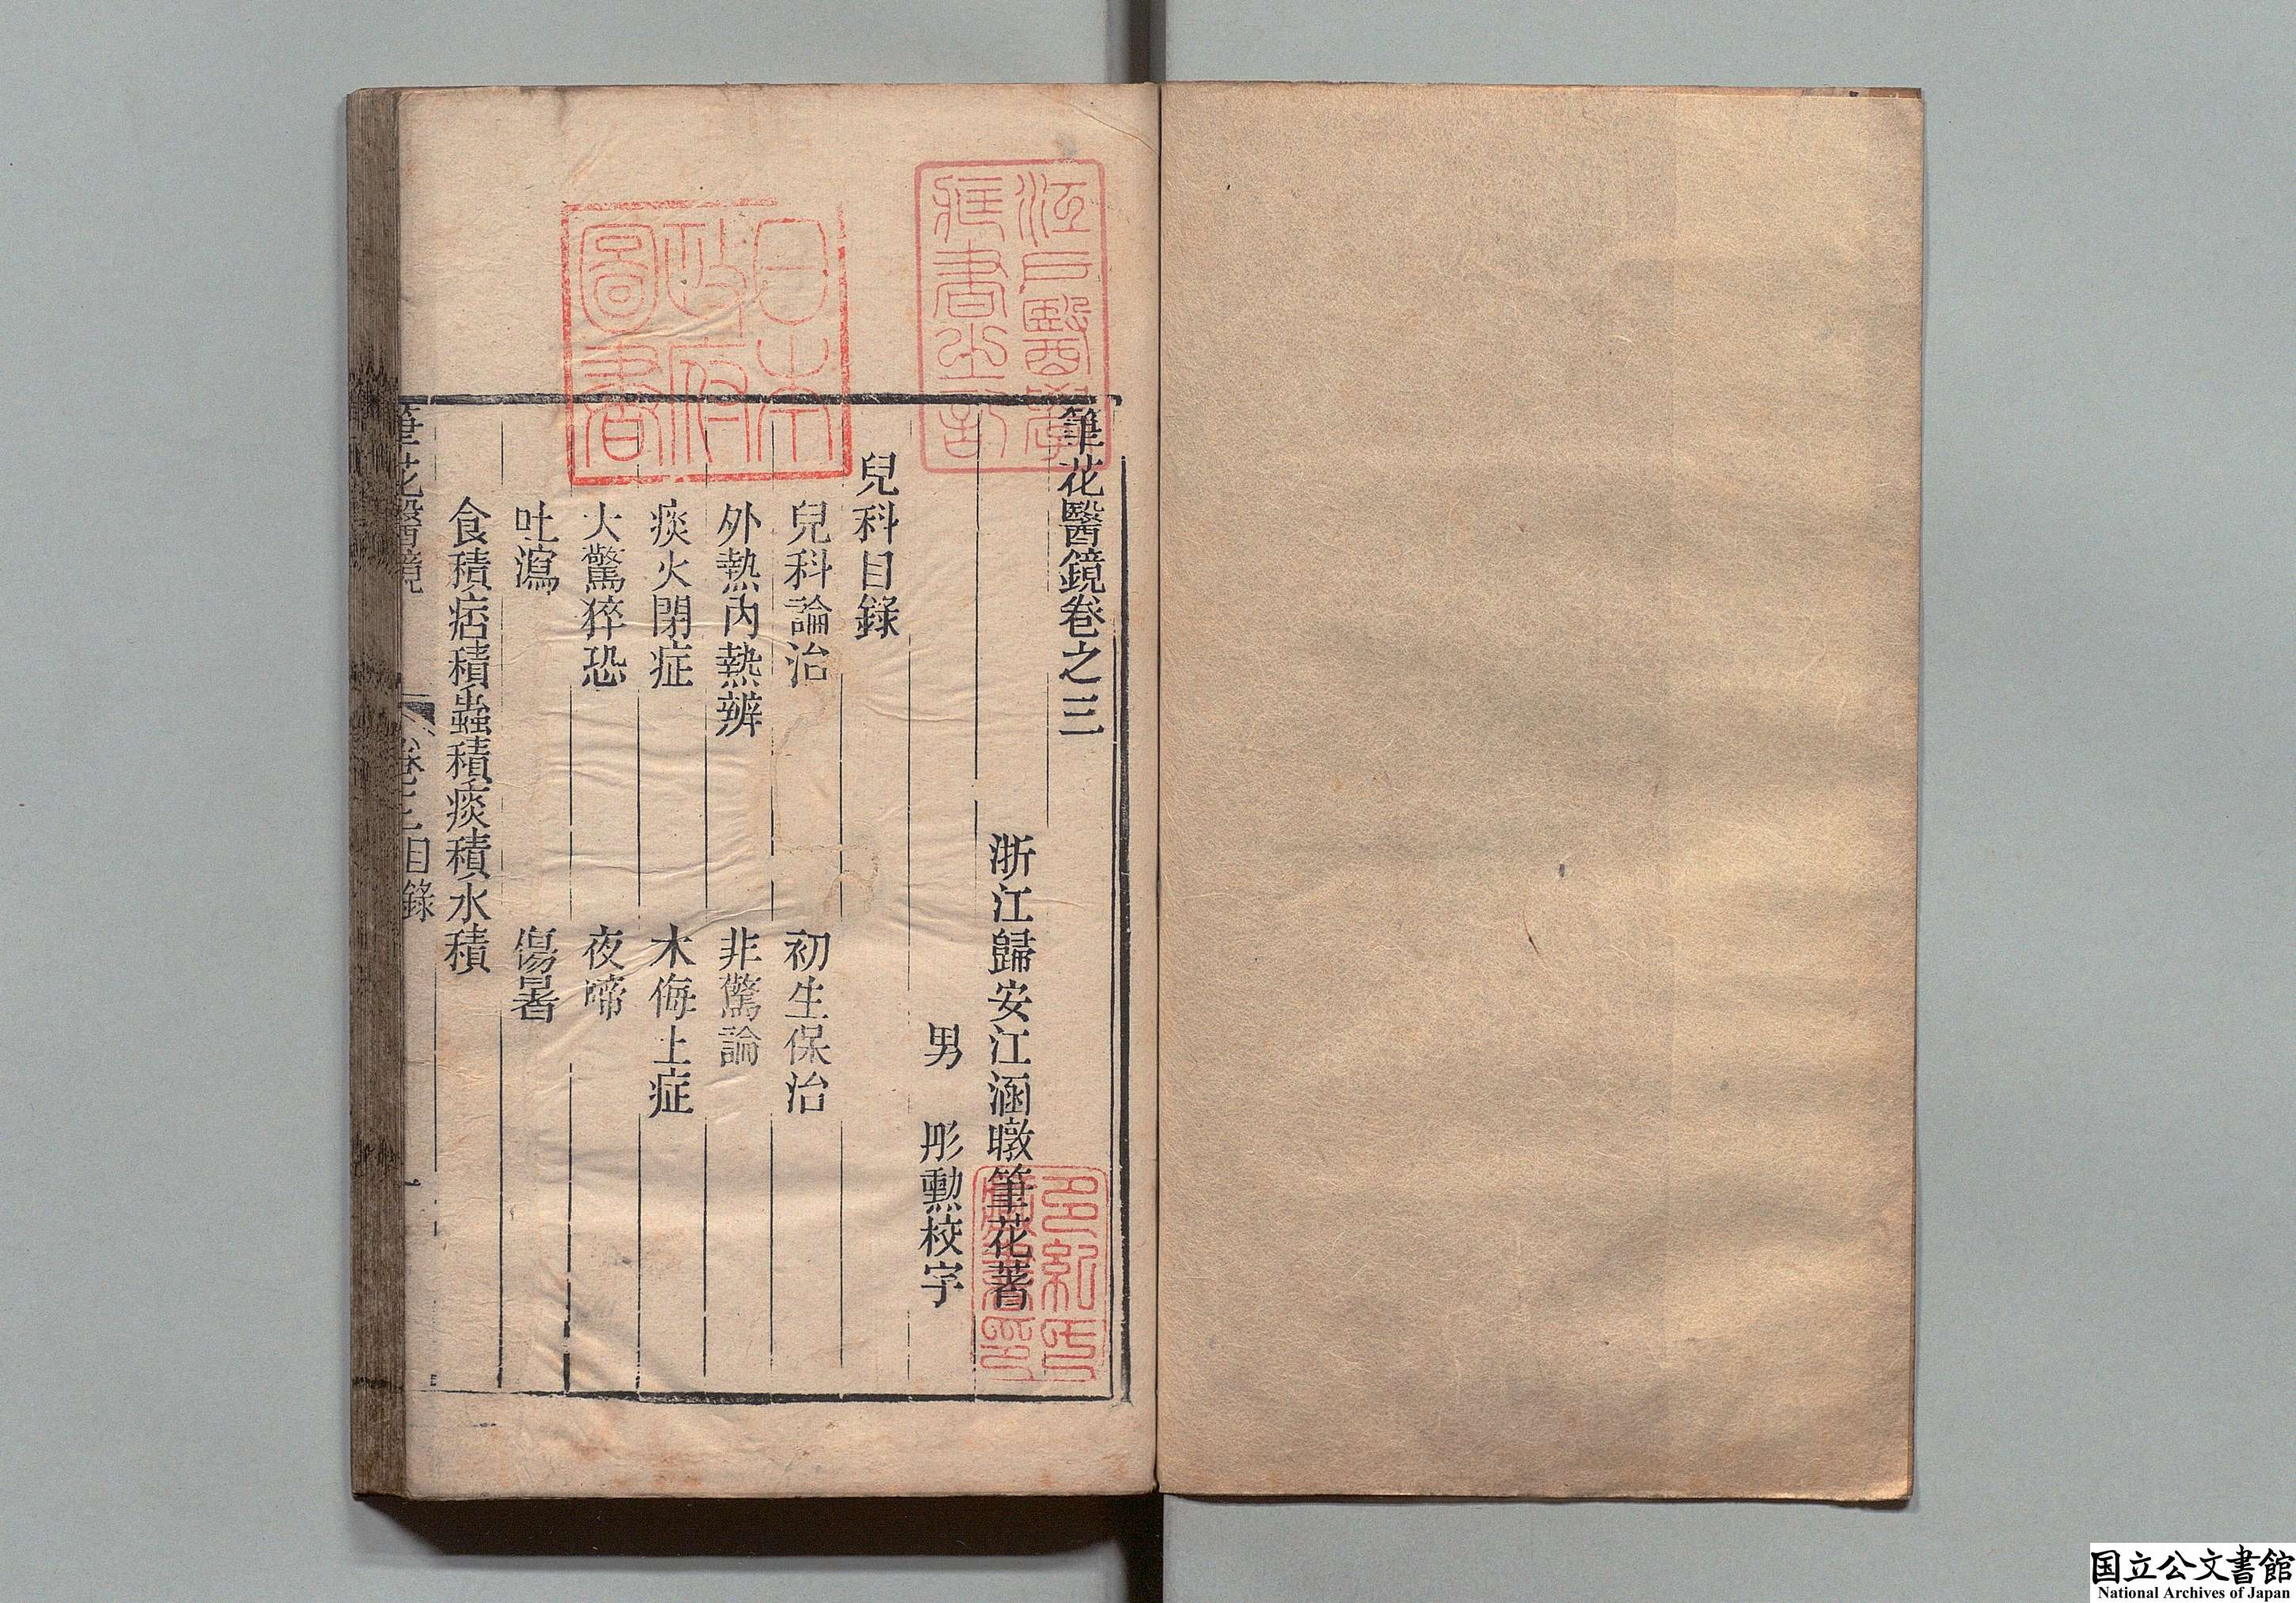 筆花醫鏡卷之三
浙江歸安江涵暾筆花著
男 彤勲校字
兒科目錄
兒科論治 初生保治
外熱內熱辨 非驚論
痰火閉症 木侮土症
大驚猝恐 夜啼
吐瀉 傷暑
食積痞積蟲積痰積水積
筆花醫鏡 卷之三目錄 一
江戸醫學
藏書之記
日本
政府
圖書
多紀氏
藏書印
国立公文書館
National Archives of Japan